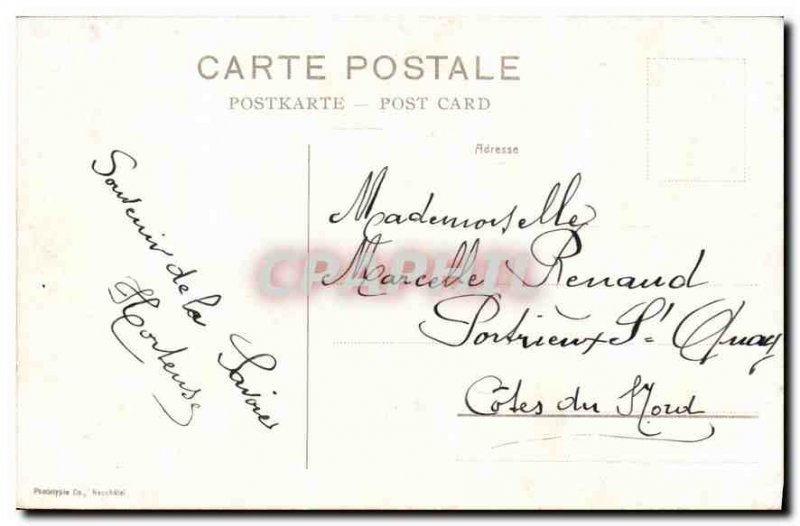 CARTE POSTALE
POSTKARTE — POST CARD
Adresse
Souvenir de la Savoie
Hortense
Mademoiselle
Marcelle Renaud
Portrieux St. Quay
Côtes du Nord
Phototypie Co., Neuchâtel
CPAPHIL